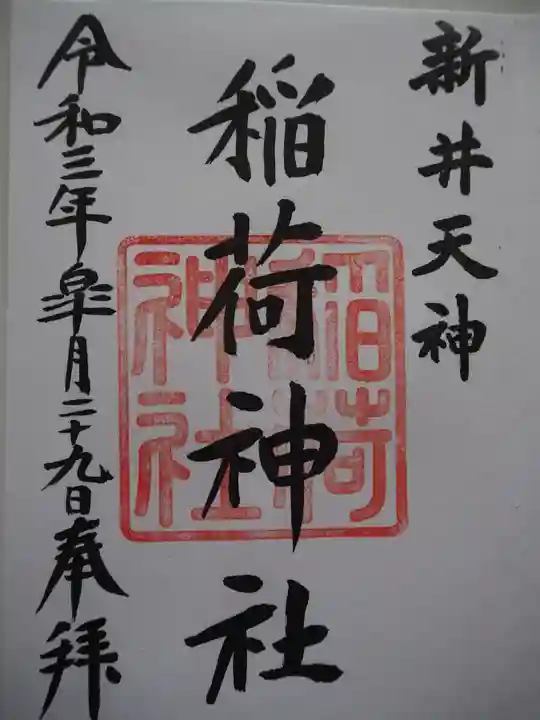 新井天神
稲荷神社
令和三年皐月二十九日奉拝
稲荷
神社